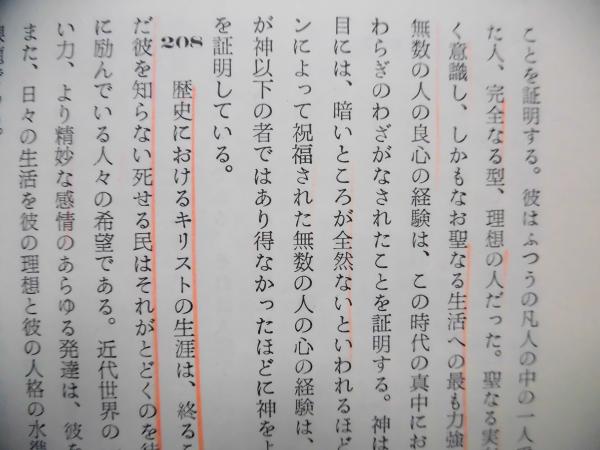 ことを証明する。彼はふつうの凡人の中の一人で
た人、完全なる型、理想の人だった。聖なる実
く意識し、しかもなお聖なる生活への最も力強
無数の人の良心の経験は、この時代の真中にお
わらぎのわざがなされたことを証明する。神は
目には、暗いところが全然ないといわれるほど
ンによって祝福された無数の人の心の経験は、
が神以下の者ではあり得なかったほどに神をよ
を証明している。
208 歴史におけるキリストの生涯は、終るこ
だ彼を知らない死せる民はそれがとどくのを待
に励んでいる人々の希望である。近代世界の
い力、より精妙な感情のあらゆる発達は、彼を
また、日々の生活を彼の理想と彼の人格の水準